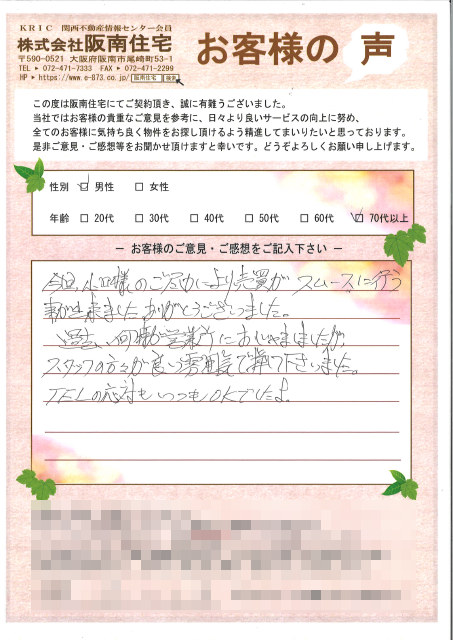 KRIC 関西不動産情報センター会員
株式会社阪南住宅
〒590-0521 大阪府阪南市尾崎町53-1
TEL ▸ 072-471-7333 FAX ▸ 072-471-2299
HP ▸ https://www.e-873.co.jp/ 阪南住宅 検索
お客様の声
この度は阪南住宅にてご契約頂き、誠に有難うございました。
当社ではお客様の貴重なご意見を参考に、日々より良いサービスの向上に努め、
全てのお客様に気持ち良く物件をお探し頂けるよう精進してまいりたいと思っております。
是非ご意見・ご感想等をお聞かせ頂けますと幸いです。どうぞよろしくお願い申し上げます。
性別 ☑ 男性 □ 女性
年齢 □ 20代 □ 30代 □ 40代 □ 50代 □ 60代 ☑ 70代以上
― お客様のご意見・ご感想をご記入下さい ―
今回、様のご尽力により売買がスムースに行う
事が出来ましたありがとうございました。
過去、何度か営業所におじゃましましたが、
スタッフの方々が良い雰囲気で接して下さいました。
TELの応対もいつもOKでしたよ。